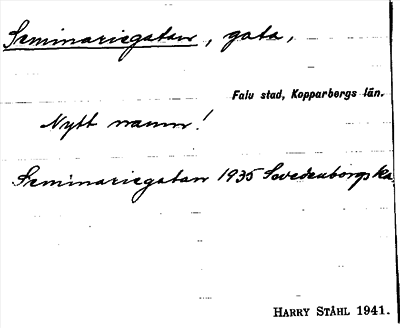 Seminariegatan, gata,
Falu stad, Kopparbergs län.
Nytt namn!
Seminariegatan 1935 Swedenborgs ka.
HARRY STÅHL 1941.